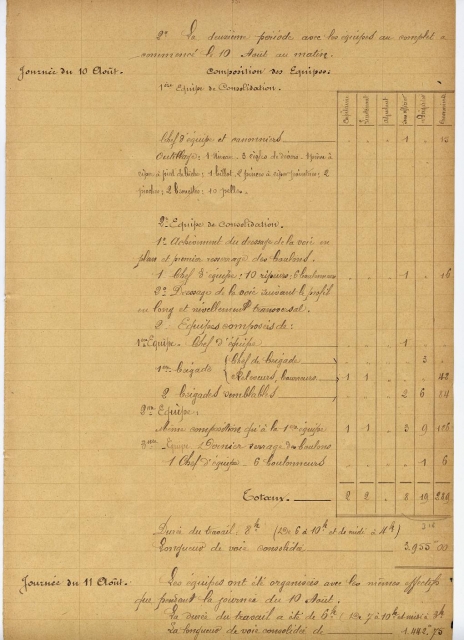 2° La deuxième période avec les équipes au complet a
commencé le 10 Août au matin.
Journée du 10 Août. Composition des Equipes:
1ère Equipe de Consolidation.
Chef d'équipe et 1
Outillage: 2
pinces à 2
pioches; 2 10 pelles.
2e Equipe de Consolidation.
1° Achèvement du dressage de la voie en
plan et premier resserrage des boulons.
1 Chef d'équipe; 10 6 boulonneurs 1 16
2° Dressage de la voie suivant le profil
en long et nivellement transversal.
2 Equipes composées de:
1ère Equipe. Chef d'équipe 1
1ère brigade { Chef de brigade 3
1 1 42
2 brigades semblables 2 6 84
2me Equipe:
Même composition qu'à la 1ère équipe 1 1 3 9 126
3me Equipe Dernier serrage des boulons
1 Chef d'équipe 6 boulonneurs 1 6
Totaux. 2 2 8 19 289
Durée du travail: 8h (De 6 à 10h et de midi à 4h)
Longueur de voie consolidée 3.955m00
Journée du 11 Août. Les équipes ont été organisées avec les mêmes effectifs
que pendant la journée du 10 Août.
La durée du travail a été de 6h: De 7 à 10h et midi à 3h
La longueur de voie consolidée de 1.442m75